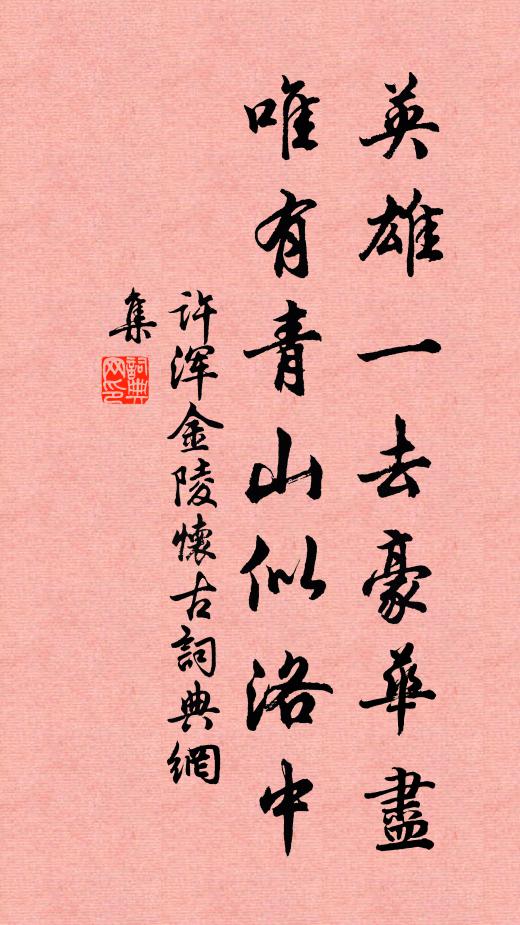 英雄一去豪華盡
唯有青山似洛中
许浑金陵懷古詞典網
集
詞典
网印